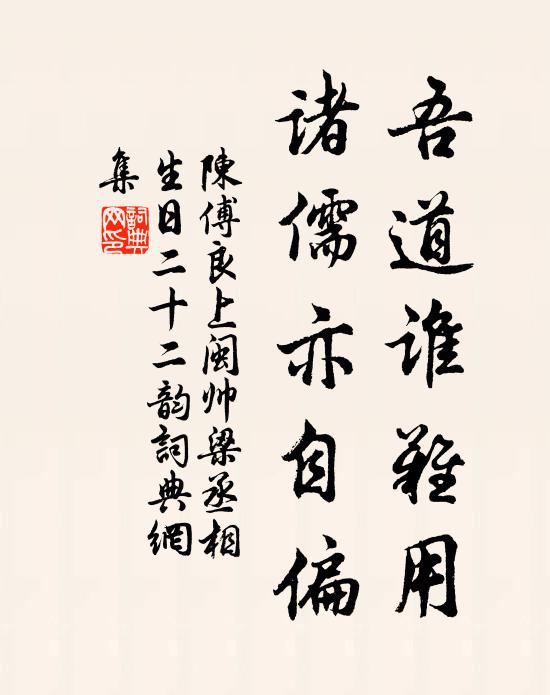 吾道谁難用
諸儒亦自偏
陳傅良上闽帅梁丞相
生日二十二韵詞典網
集
詞典
网印